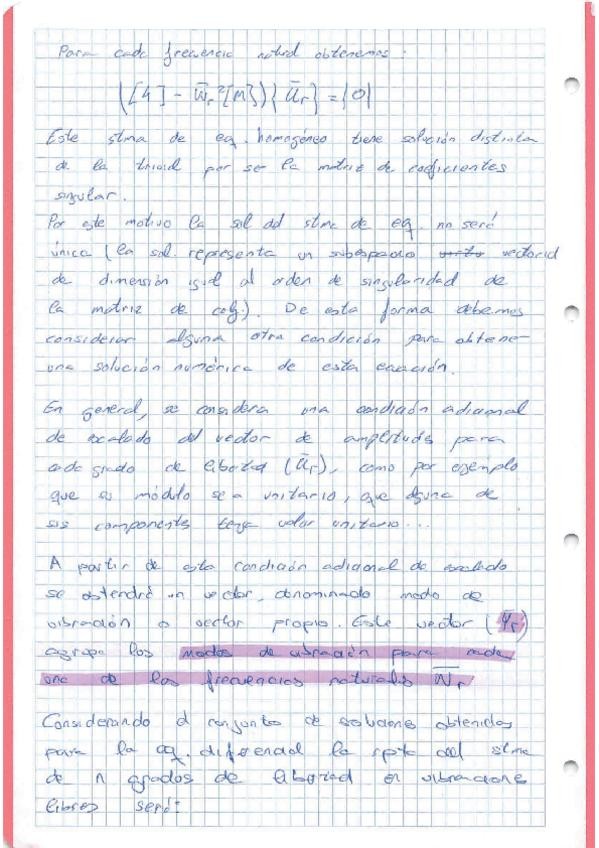 Para cada frecuencia natural obtenemos:
([K] - w̄r²[M]){ūr} = {0}
Este stma de eq. homogéneo tiene solución distinta
de la trivial por ser la matriz de coeficientes
singular.
Por este motivo la sol del stma de eq. no será
única (la sol. representa un subespacio vectorial
de dimensión igual al orden de singularidad de
la matriz de coef.). De esta forma debemos
considerar alguna otra condición para obtener
una solución numérica de esta ecuación.
En general, se considera una condición adicional
de escalado del vector de amplitudes para
cada grado de libertad (ūr), como por ejemplo
que su módulo sea unitario, que alguna de
sus componentes tenga valor unitario...
A partir de esta condición adicional de escalado
se obtendrá un vector, denominado modo de
vibración o vector propio. Este vector (Ψ̄r)
agrupa los modos de vibración para cada
una de las frecuencias naturales w̄r
Considerando el conjunto de soluciones obtenidas
para la eq. diferencial la rpta del stma
de n grados de libertad en vibraciones
libres será: